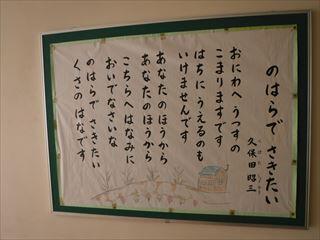 のはらで さきたい
久保田 昭三
おにわへ うつすの
こまりますです
はちに うえるのも
いけませんです
あなたのほうから
あなたのほうから
こちらへ はなみに
おいでなさいな
のはらで さきたい
くさの はなです